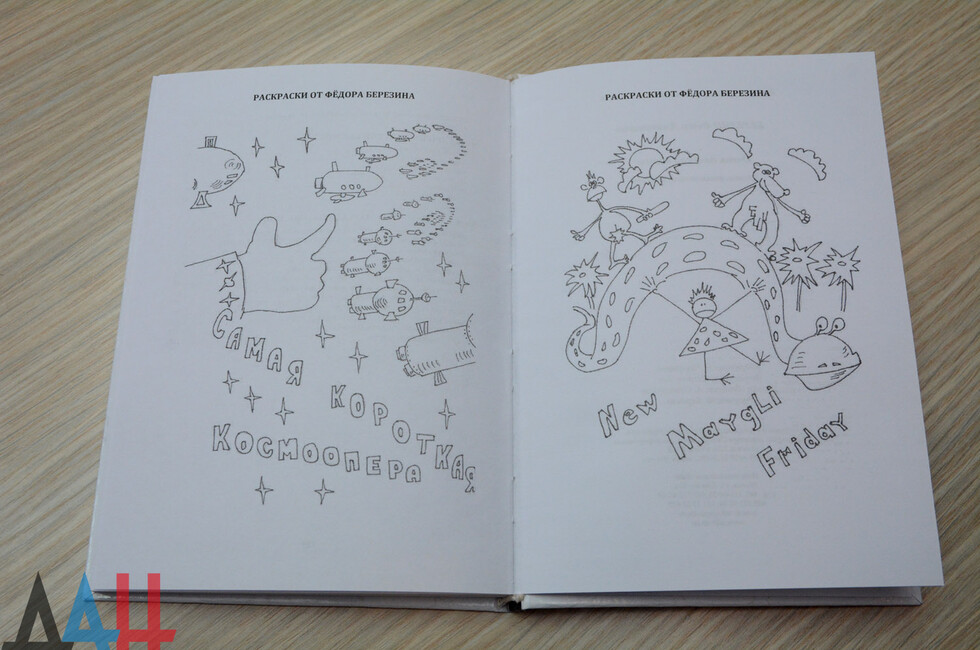 РАСКРАСКИ ОТ ФЁДОРА БЕРЕЗИНА
САМАЯ
КОРОТКАЯ
КОСМООПЕРА
РАСКРАСКИ ОТ ФЁДОРА БЕРЕЗИНА
New
MaygLi
Friday
ДАН